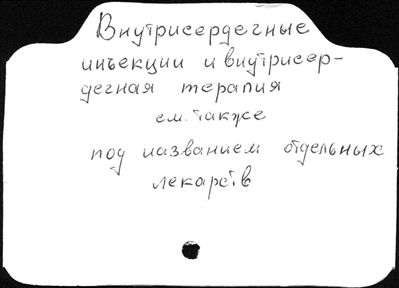 Внутрисердечные
инъекции и внутрисер-
дечная терапия
см. также
под названием отдельных
лекарств